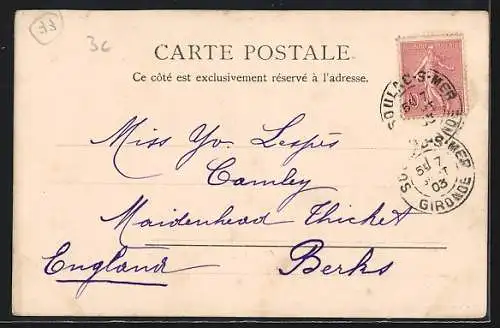 3c
CARTE POSTALE.
Ce côté est exclusivement réservé à l'adresse.
SOULAC-S-MER
Miss Yo. Lespès
Camley
Maidenhead Thicket
England Berks
SOULAC-S-MER
5E 7
03
GIRONDE